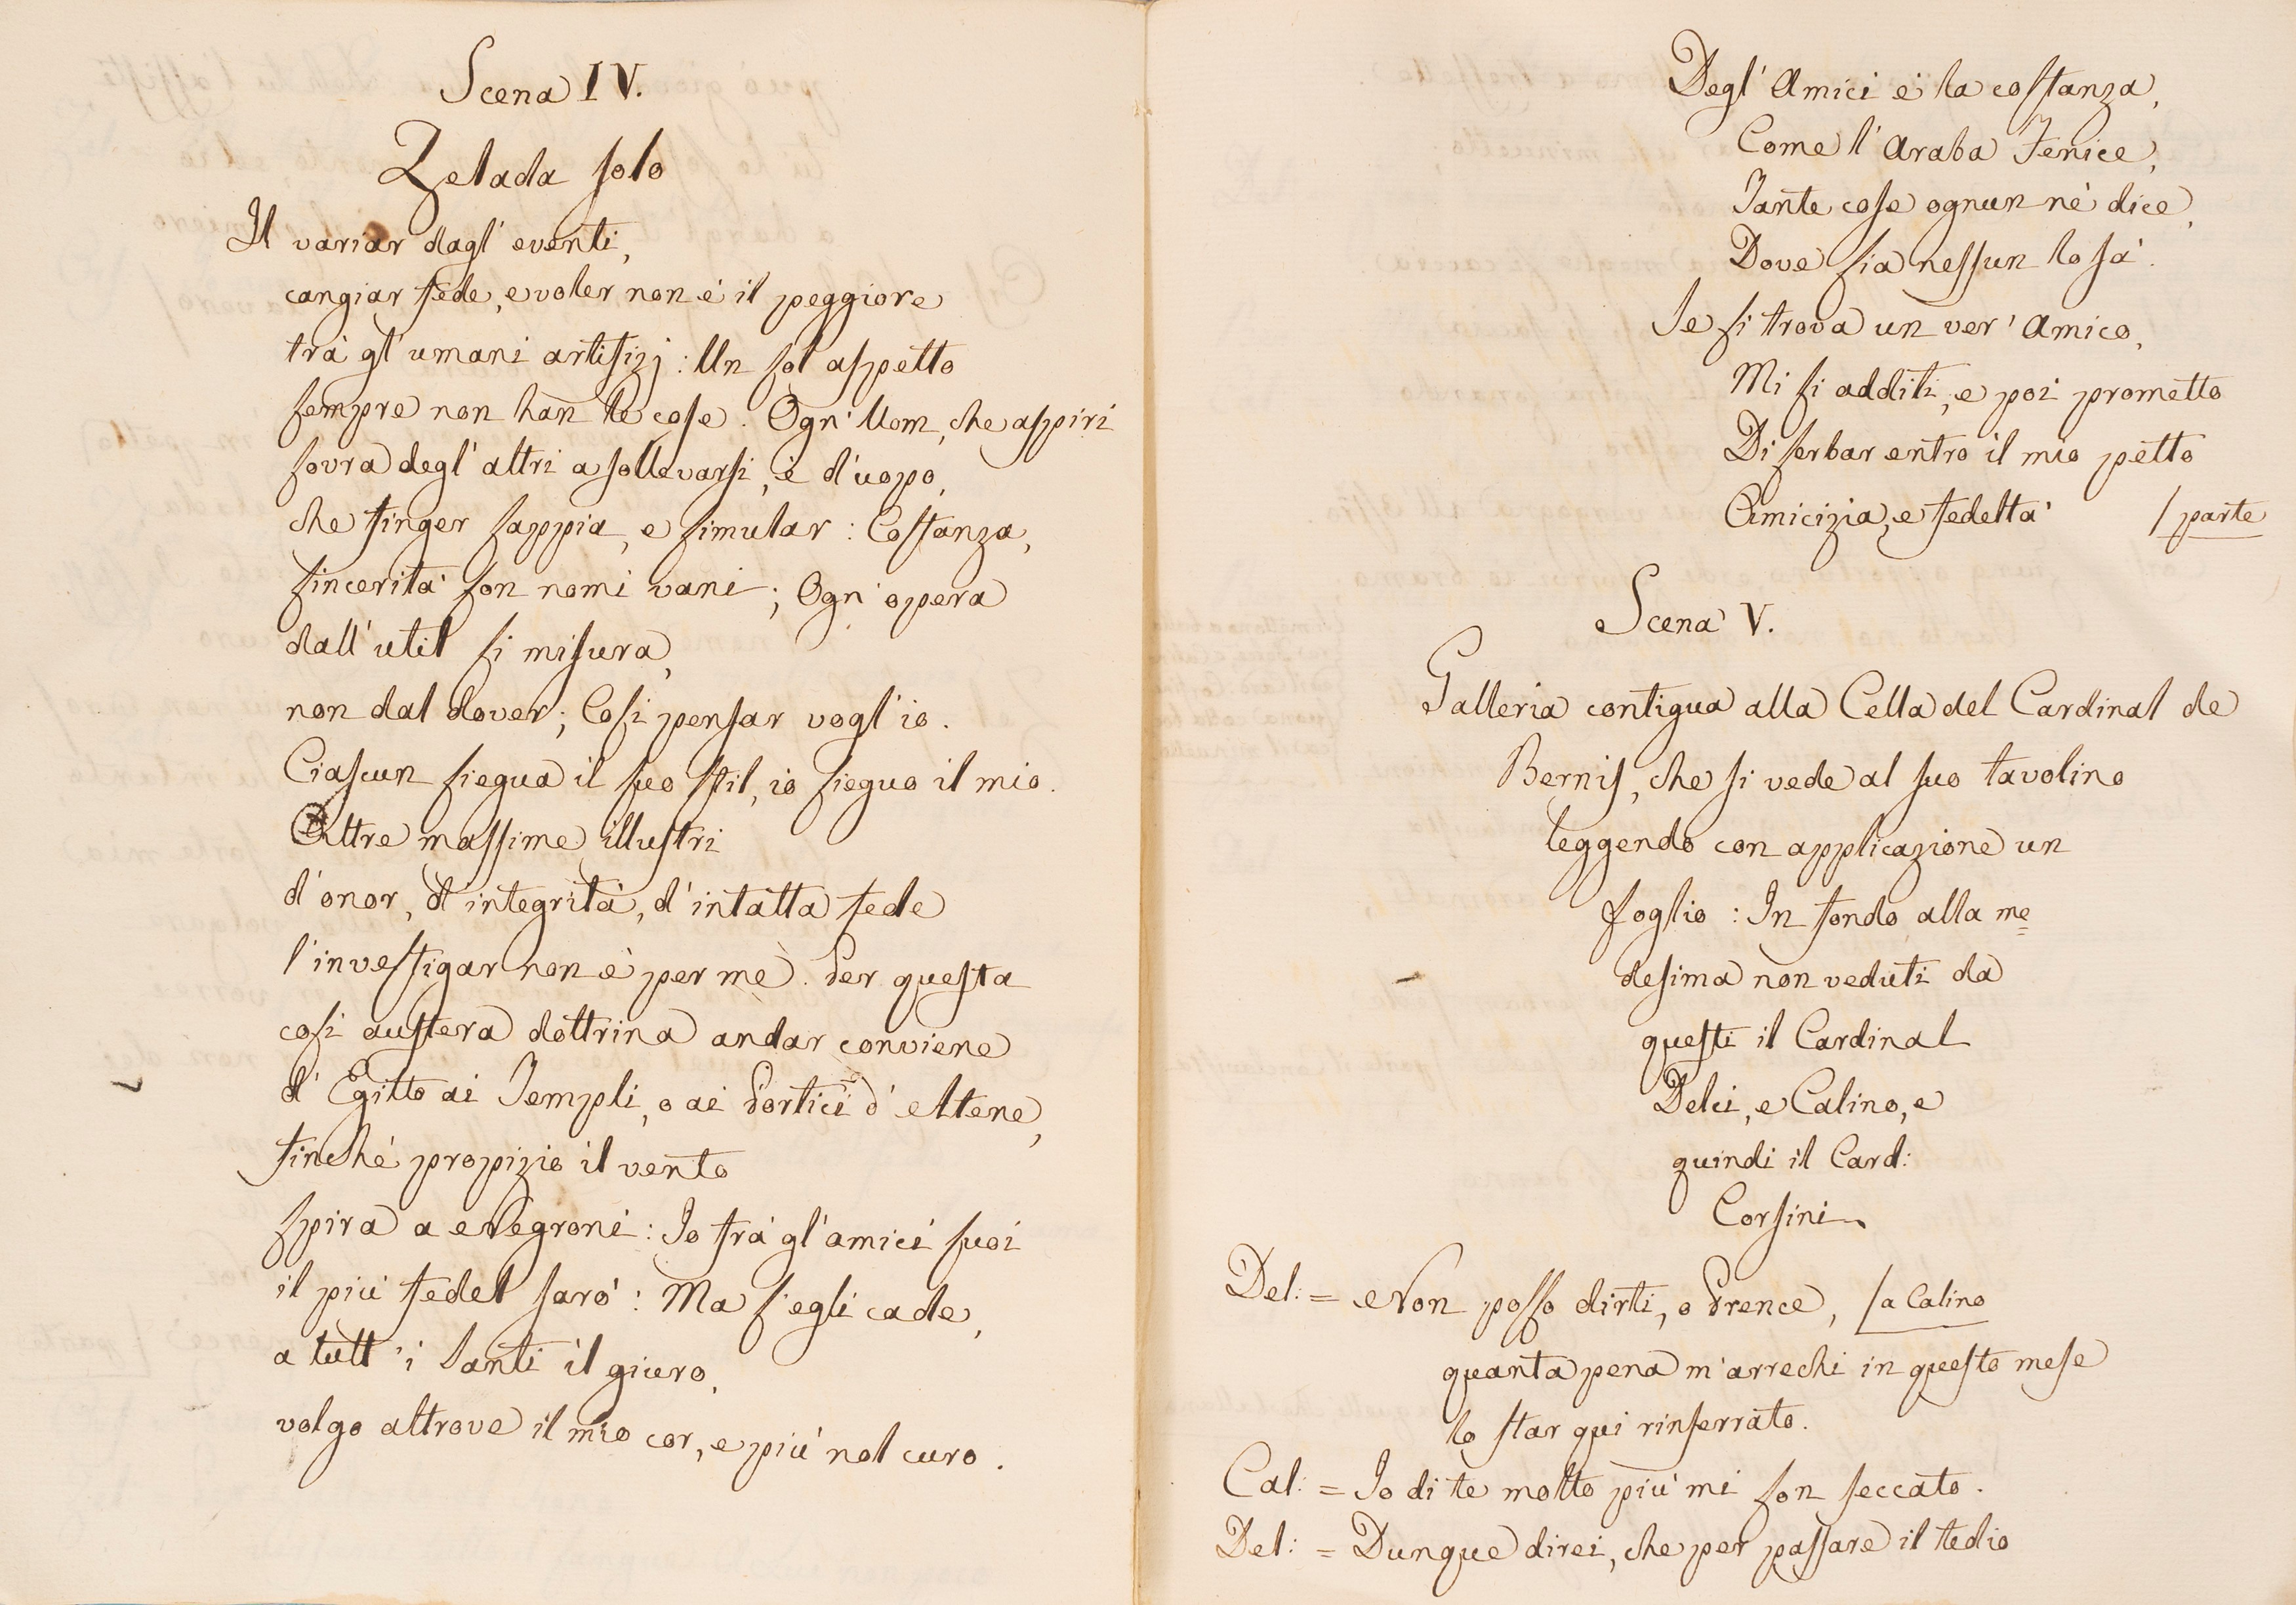 Scena IV.
Zelada solo
Il variar dagl' eventi,
cangiar fede, e voler non è il peggiore
trà gl' umani artifizj : Un sol aspetto
sempre non han le cose. Ogn' Uom, che aspiri
sovra degl' altri a sollevarsi, è d'uopo,
che finger sappia, e simular : Costanza,
sincerità son nomi vani ; Ogn' opera
dall' util si misura,
non dal dover ; Così pensar vogl' io.
Ciascun siegua il suo stil, io sieguo il mio.
Altre massime illustri
d'onor, d'integrità, d'intatta fede
l'investigar non è per mè. Per questa
così austera dottrina andar conviene
d' Egitto ai Templi, o ai Portici d' Atene,
finchè propizio il vento
spira a Negroni : Io frà gl' amici suoi
il più fedel sarò : Ma s'egli cade,
a tutt' i Santi il giuro,
volgo altrove il mio cor, e più nol curo.
Degl' Amici è la costanza,
Come l' Araba Fenice,
Tante cose ognun nè dice,
Dove sia nessun lo sà.
Se si trova un ver' Amico,
Mi si additi, e poi prometto
Di serbar entro il mio petto
Amicizia, e fedeltà / parte
Scena V.
Galleria contigua alla Cella del Cardinal de
Bernis, che si vede al suo tavolino
leggendo con applicazione un
foglio : In fondo alla me=
desima non veduti da
questi il Cardinal
Delci, e Calino, e
quindi il Card:
Corsini
Del: = Non posso dirti, o Prence, / a Calino
quanta pena m'arrechi in questo mese
lo star qui rinserrato.
Cal: = Io di te molto più mi son seccato.
Del: = Dunque direi, che per passare il tedio